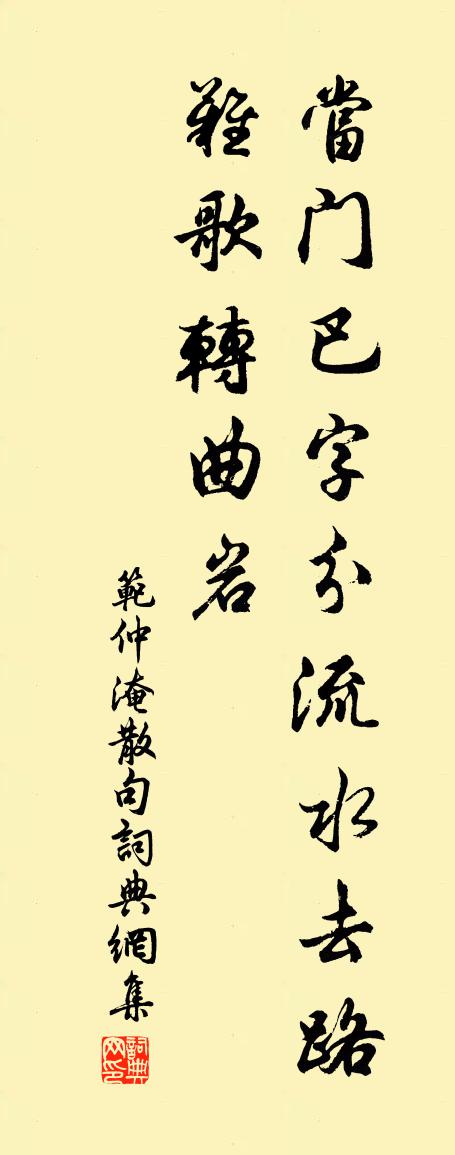 當門巴字分流水去路
難歌轉曲岩
範仲淹散句詞典網集
詞典网印